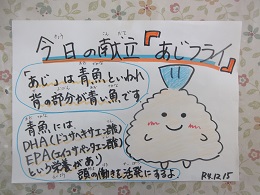 今日の献立『あじフライ』
「あじ」は青魚といわれ
背の部分が青い魚です
青魚には
DHA(ドコサヘキサエン酸)
EPA(エイコサペンタエン酸)
という栄養があり
頭の働きを活発にするよ。
R4.12.15